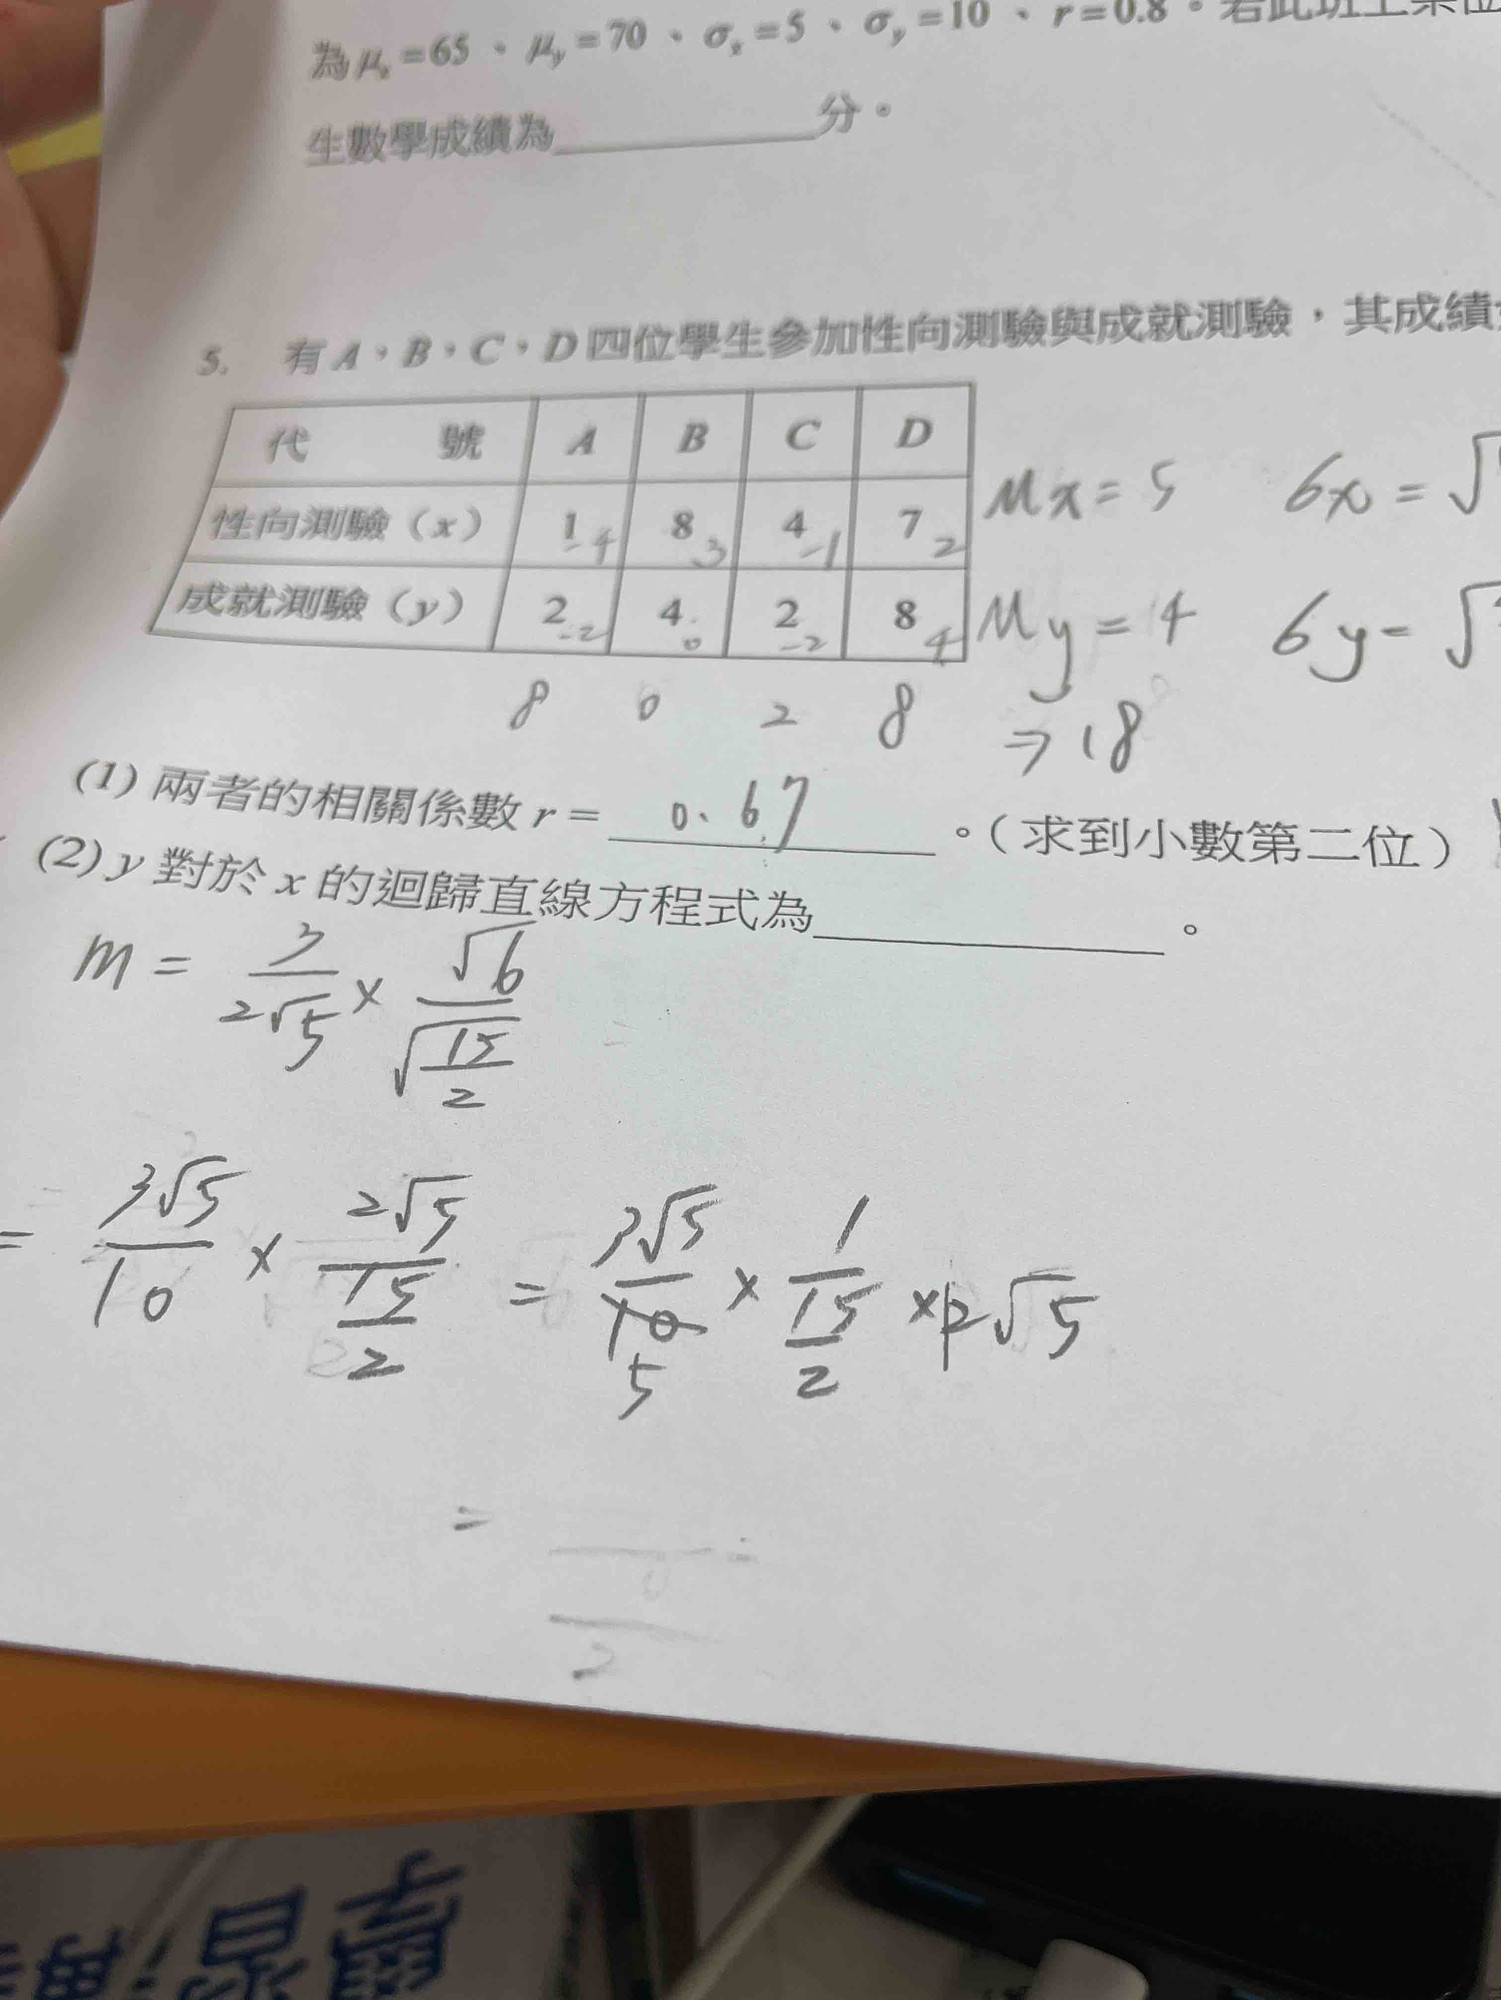 為μx=65、μy=70、σx=5、σy=10、r=0.8。若此班上某位
生數學成績為________分。
5. 有A,B,C,D四位學生參加性向測驗與成就測驗,其成績
代 號 A B C D
性向測驗(x) 1 -4 8 3 4 -1 7 2 Mx=5 6x=√
成就測驗(y) 2 -2 4 0 2 -2 8 4 My=4 6y=√
8 0 2 8 ⇒18
(1)兩者的相關係數r=0.67。(求到小數第二位)
(2)y對於x的迴歸直線方程式為________。
m = 3/2√5 × √6/√(15/2)
= 3√5/10 × 2√5/(15/2) = 3√5/10 5 × 1/(15/2) × 2√5
=
2
習